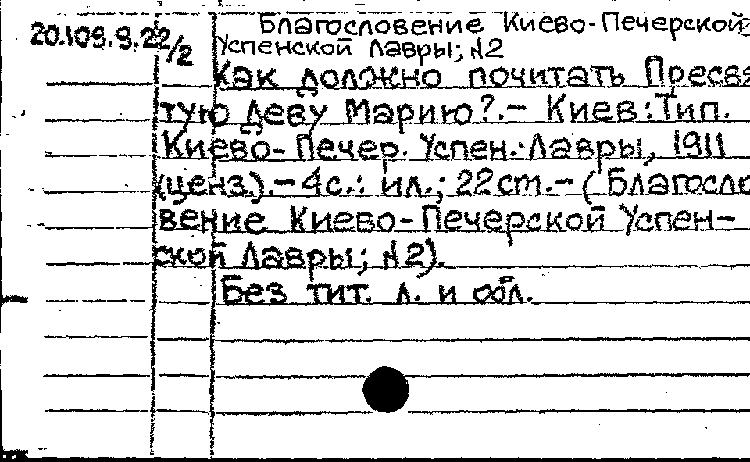 20.109.9.22/2
Благословение Киево-Печерской
Успенской Лавры; №2
Как должно почитать Пресвя
тую Деву Марию?.— Киев: Тип.
Киево-Печер. Успен. Лавры, 1911
(ценз).— 4с.: ил.; 22см.— (Благосло
вение Киево-Печерской Успен-
ской Лавры; №2).
Без тит. л. и обл.